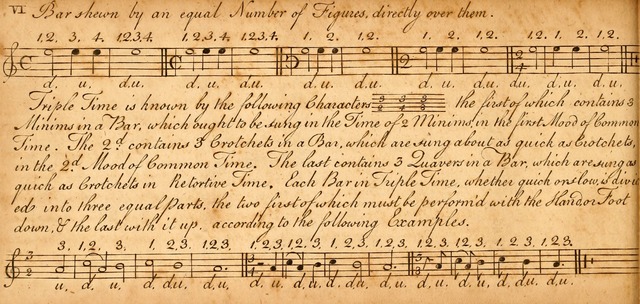 VI Bar shewn by an equal Number of Figures, directly over them.
1, 2. 3, 4. 1.2.3.4. 1, 2.3, 4. 1.2.3.4. 1, 2. 1, 2. 1, 2. 1, 2. 1, 2. 1, 2. 1, 2. 1, 2.
d. u. d.u. d. u. d.u. d. u. d.u. d. u. d.u. d. u. d.u.
Triple Time is known by the following Characters 3/2 3/4 3/8 the first of which contains 3
Minims in a Bar, which ought to be sung in the Time of 2 Minims, in the first Mood of Common
Time. The 2d contains 3 Crotchets in a Bar, which are sung about as quick as Crotchets,
in the 2d Mood of Common Time. The last contains 3 Quavers in a Bar, which are sung as
quick as Crotchets in Retortive Time. Each Bar in Triple Time, whether quick or slow, is divid
ed into three equal parts, the two first of which must be perform'd with the Hand or Foot
down, & the last with it up. according to the following Examples.